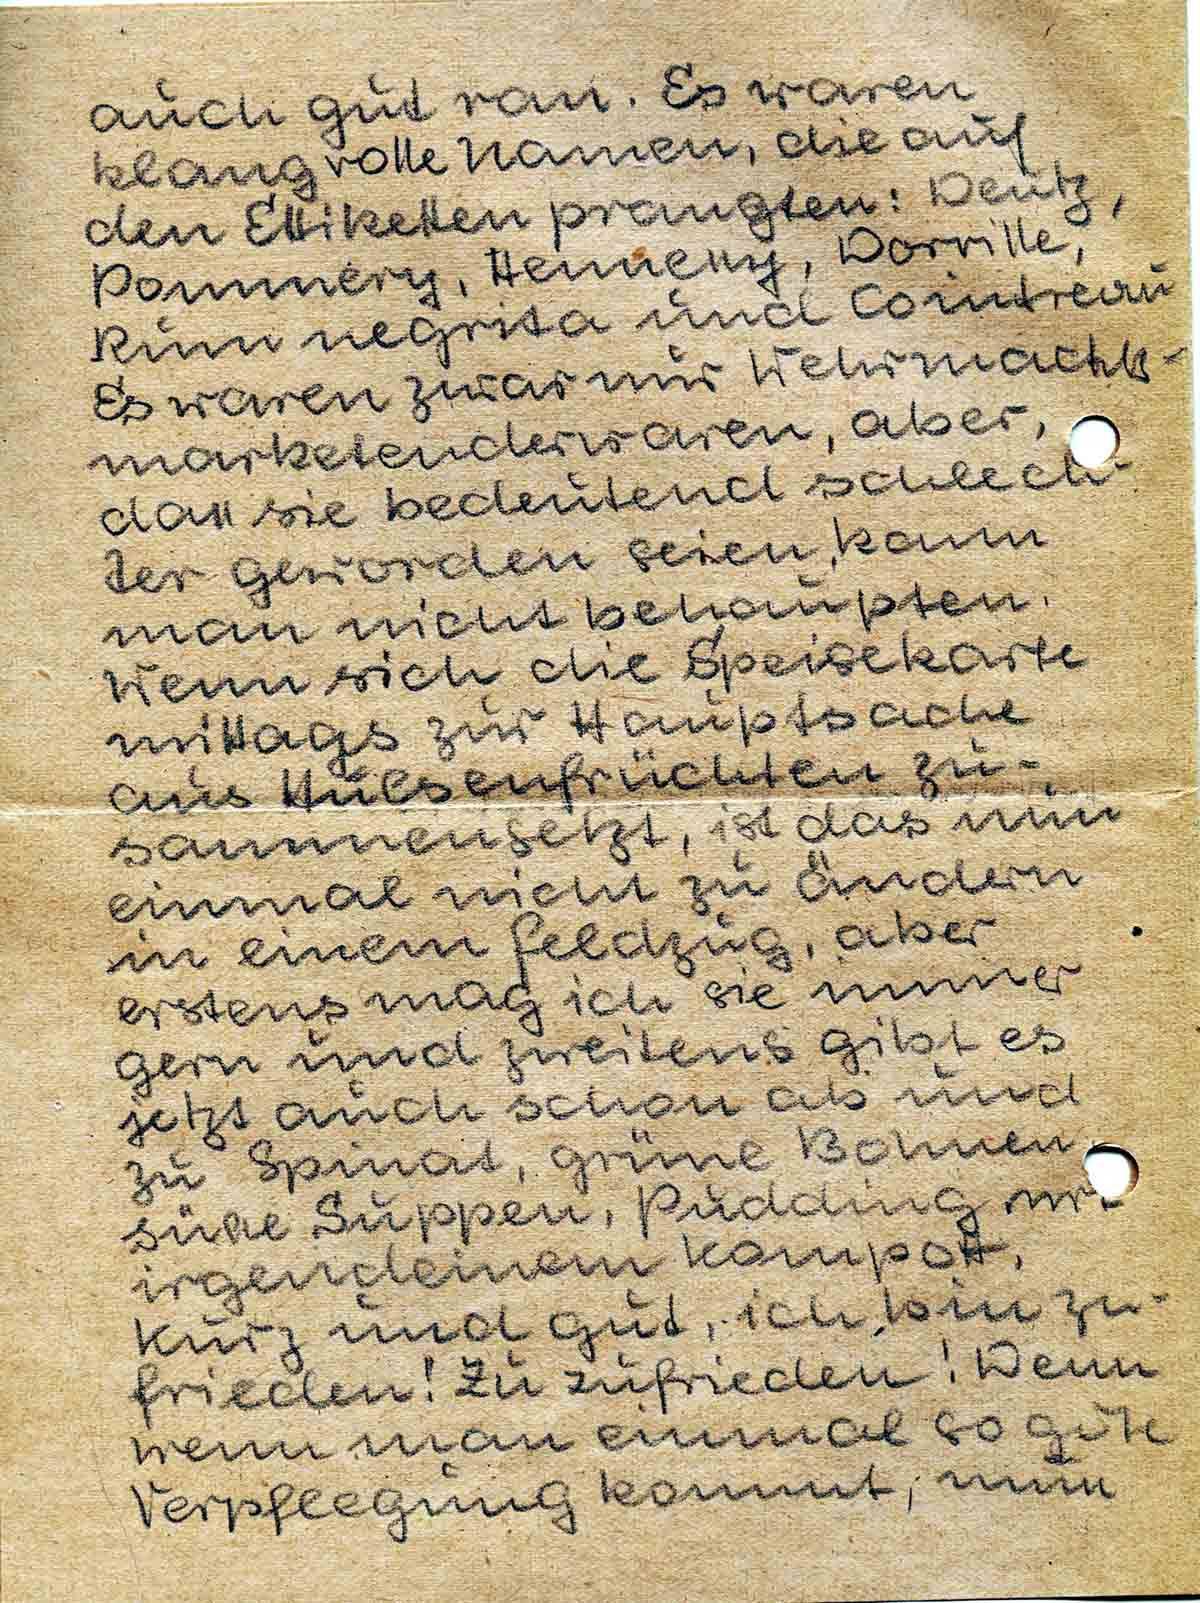 auch gut ran. Es waren
klangvolle Namen, die auf
den Ettiketten prangten: Deutz,
Pommery, Hennessy, Dorville,
Rum negrita und Cointreau
Es waren zwar nur Wehrmachts-
marketenderwaren, aber,
dass sie bedeutend schlech-
ter geworden seien, kann
man nicht behaupten.
Wenn sich die Speisekarte
mittags zur Hauptsache
aus Hülsenfrüchten zu-
sammensetzt, ist das nun
einmal nicht zu ändern
in einem Feldzug, aber
erstens mag ich sie immer
gern und zweitens gibt es
jetzt auch schon ab und
zu Spinat, grüne Bohnen,
süsse Suppen, Pudding mit
irgendeinem Kompott,
Kurz und gut, ich bin zu-
frieden! Zu zufrieden! Denn
wenn man einmal so gute
Verpflegung kommt,